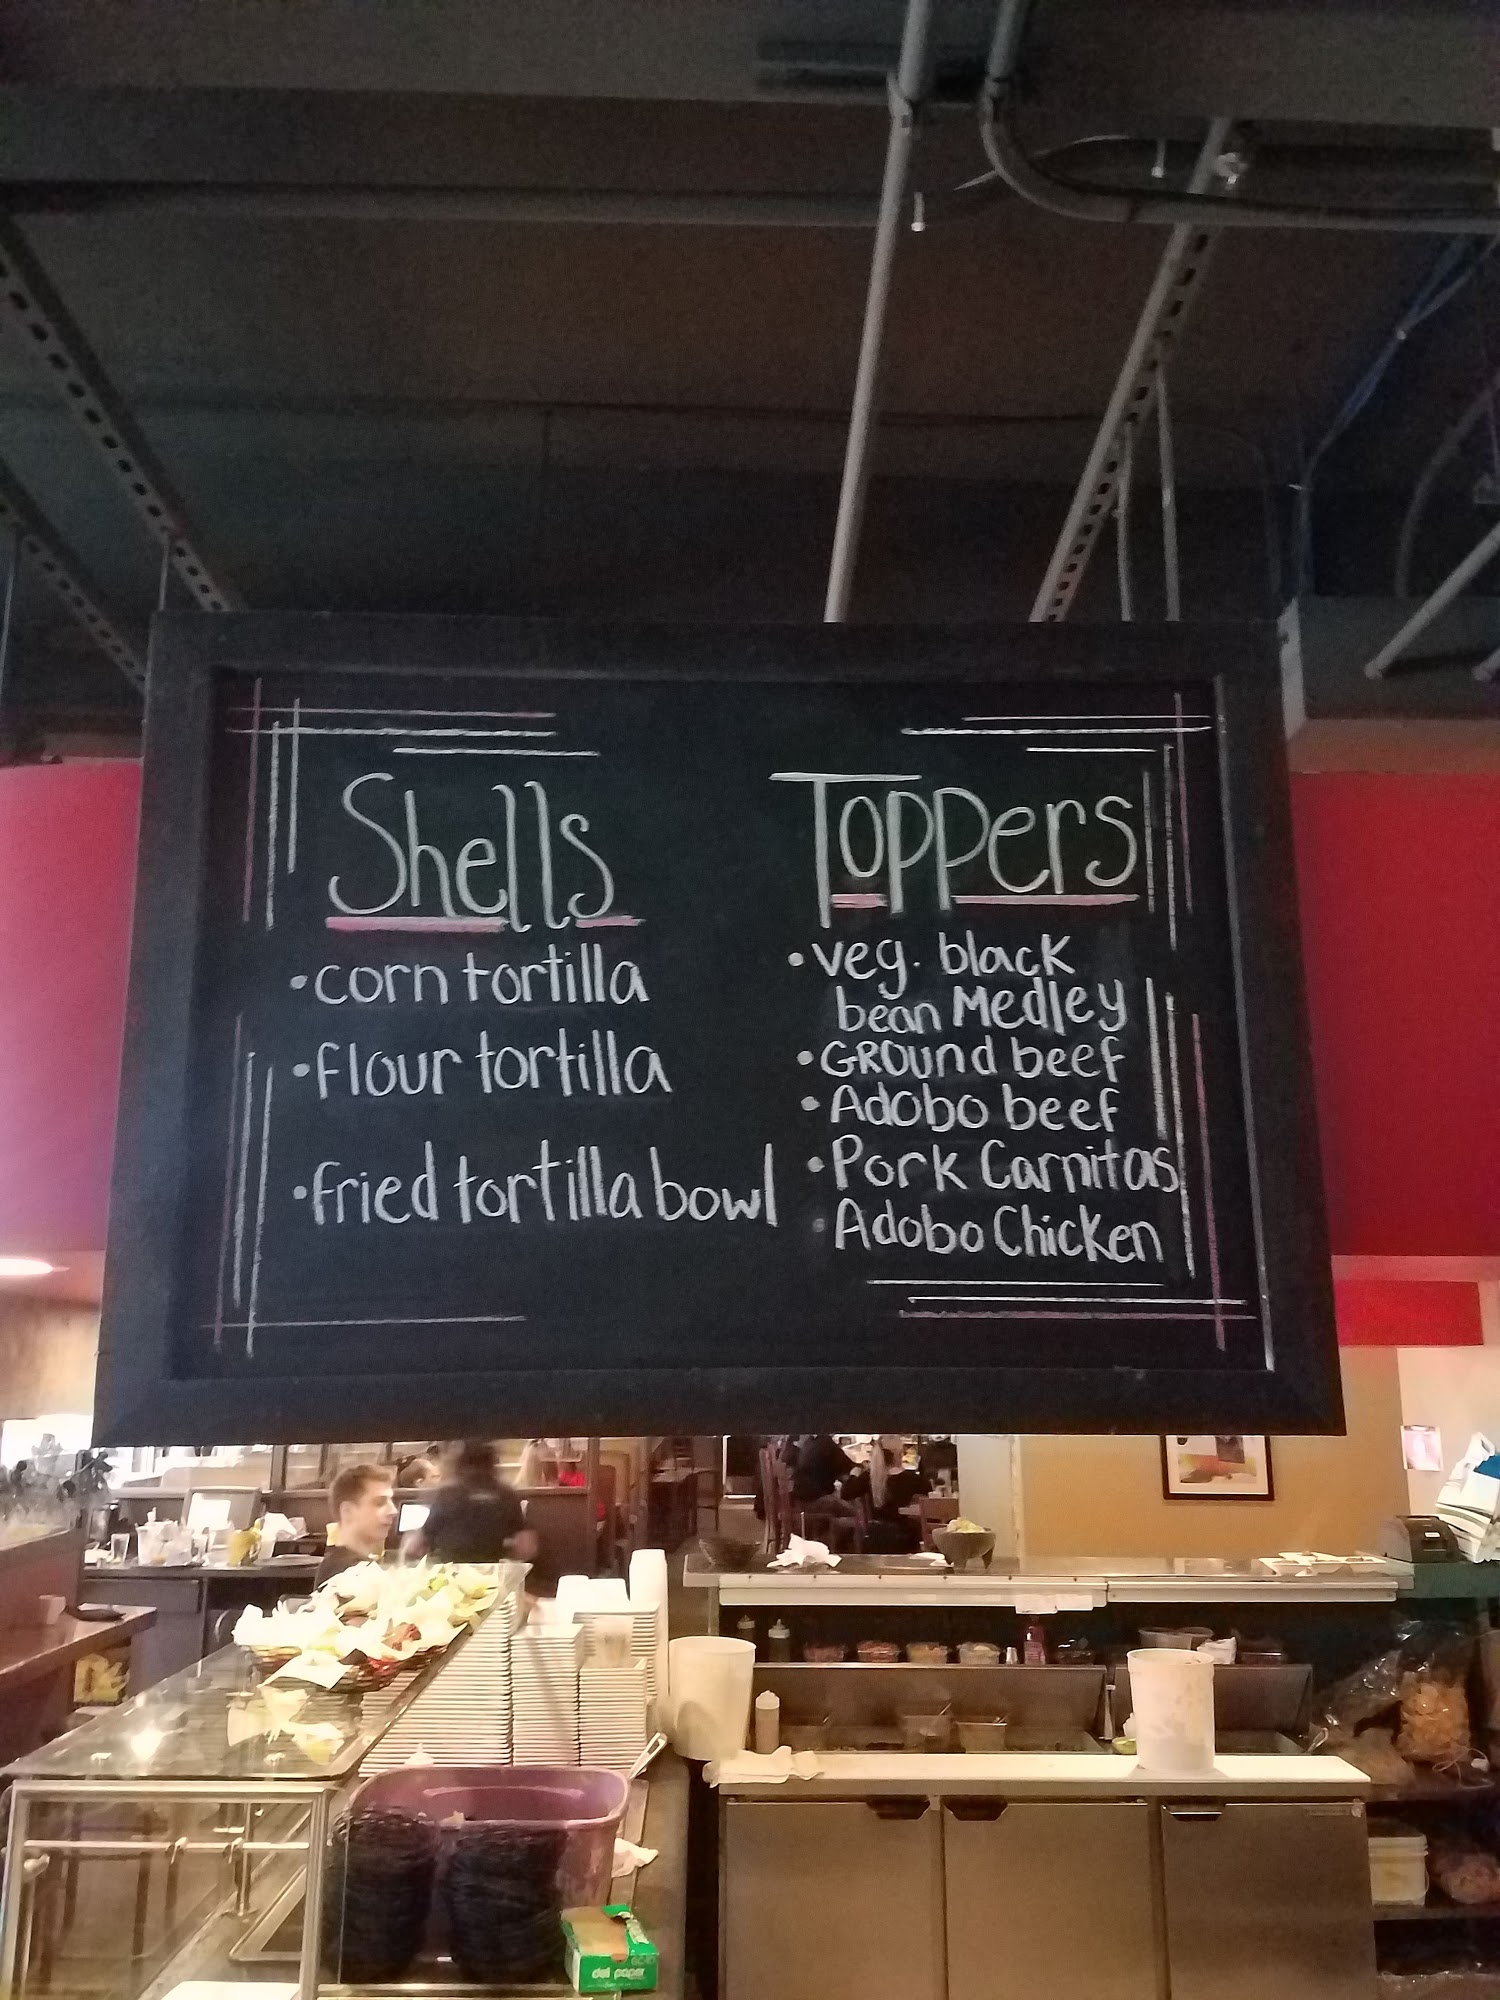 Shells
•corn tortilla
•flour tortilla
•fried tortilla bowl
Toppers
•veg. black
bean Medley
•GROUnd beef
•Adobo beef
•Pork Carnitas
•Adobo Chicken
deli paper